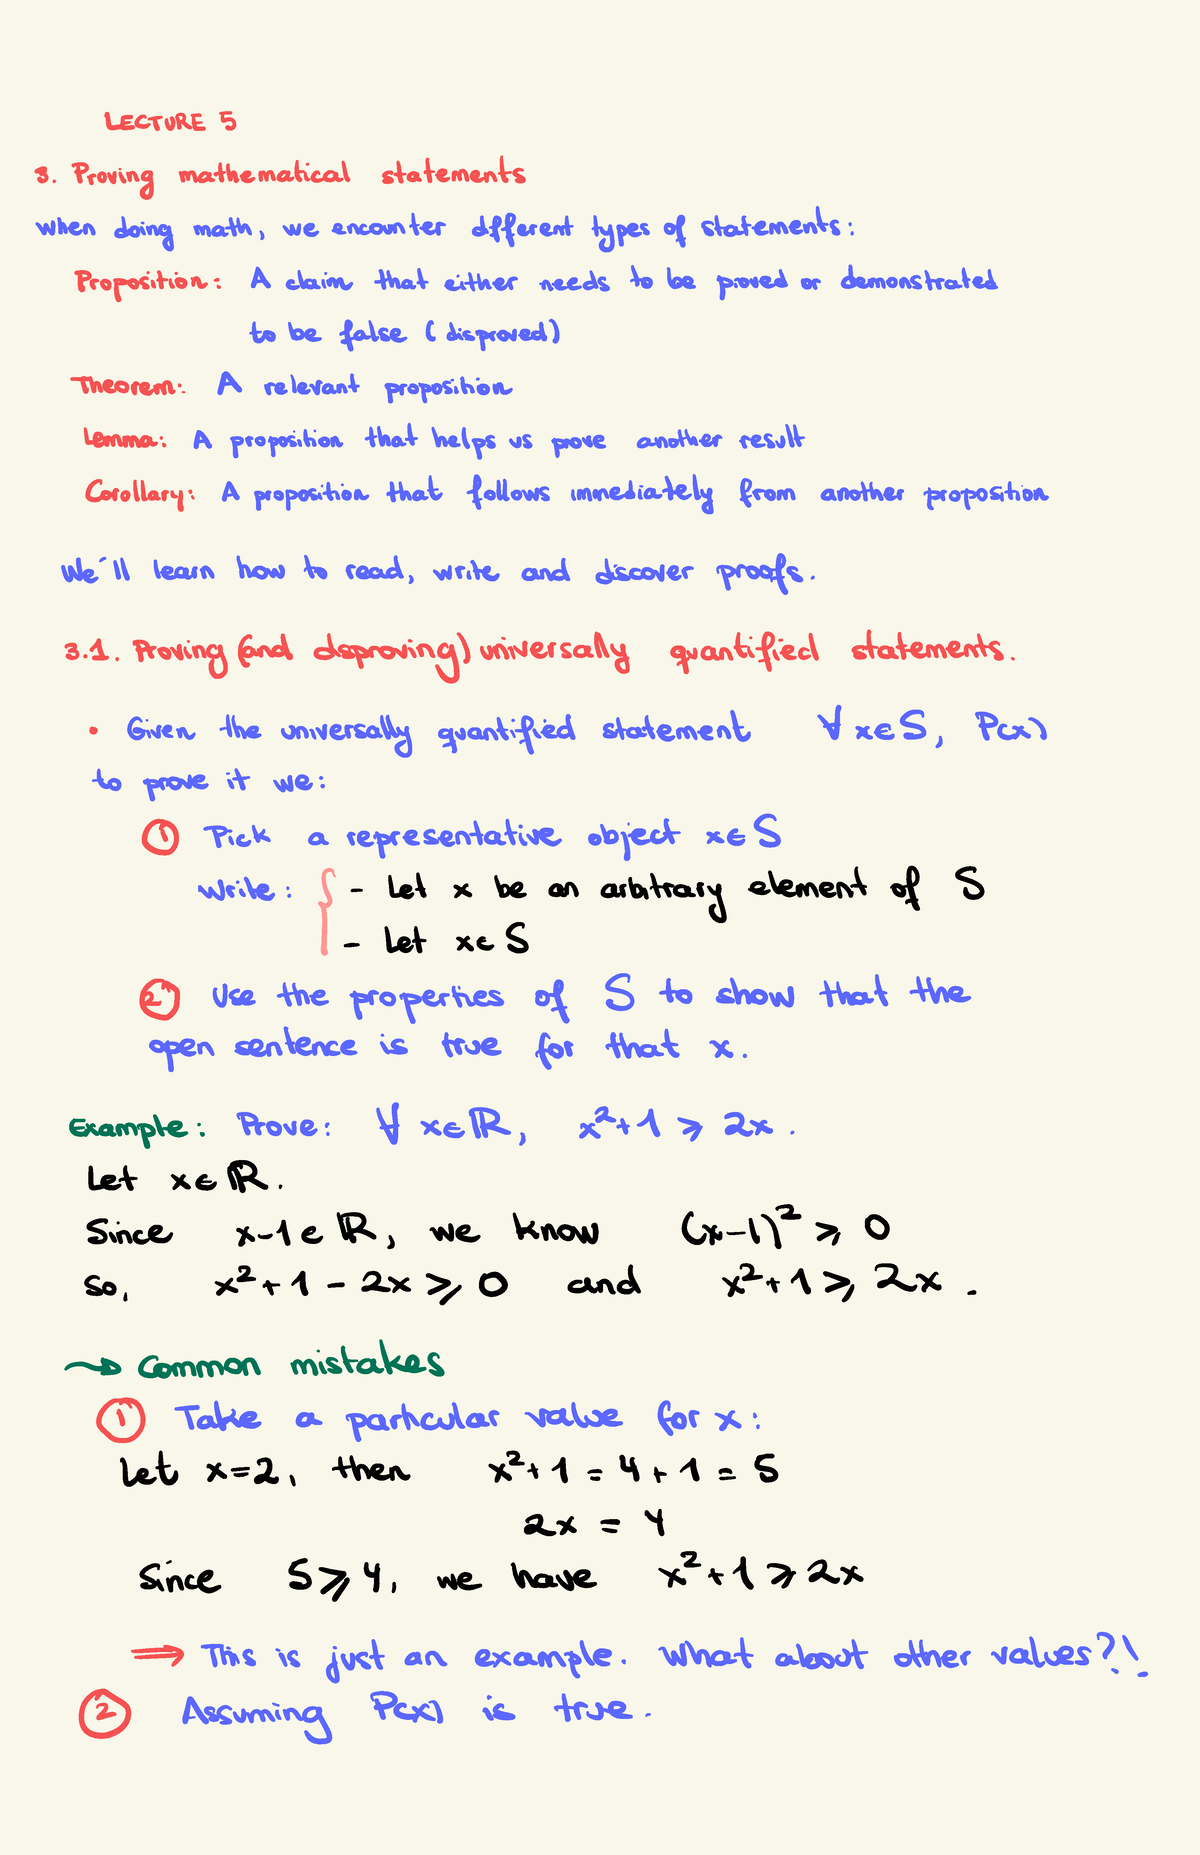 LECTURE 5
3. Proving mathematical statements
when doing math, we encounter different types of statements:
Proposition: A claim that either needs to be proved or demonstrated
to be false (disproved)
Theorem: A relevant proposition
Lemma: A proposition that helps us prove another result
Corollary: A proposition that follows immediately from another proposition
We'll learn how to read, write and discover proofs.
3.1. Proving (and disproving) universally quantified statements.
• Given the universally quantified statement ∀ x∈S, P(x)
to prove it we:
① Pick a representative object x∈S
Write: { - Let x be an arbitrary element of S
- Let x∈S
② Use the properties of S to show that the
open sentence is true for that x.
Example: Prove: ∀ x∈ℝ, x²+1 ⩾ 2x.
Let x∈ℝ.
Since x-1∈ℝ, we know (x-1)² ⩾ 0
So, x²+1-2x ⩾ 0 and x²+1 ⩾ 2x.
⇝ Common mistakes
① Take a particular value for x:
Let x=2, then x²+1 = 4+1 = 5
2x = 4
Since 5⩾4, we have x²+1 ⩾ 2x
⟹ This is just an example. What about other values?!
② Assuming P(x) is true.